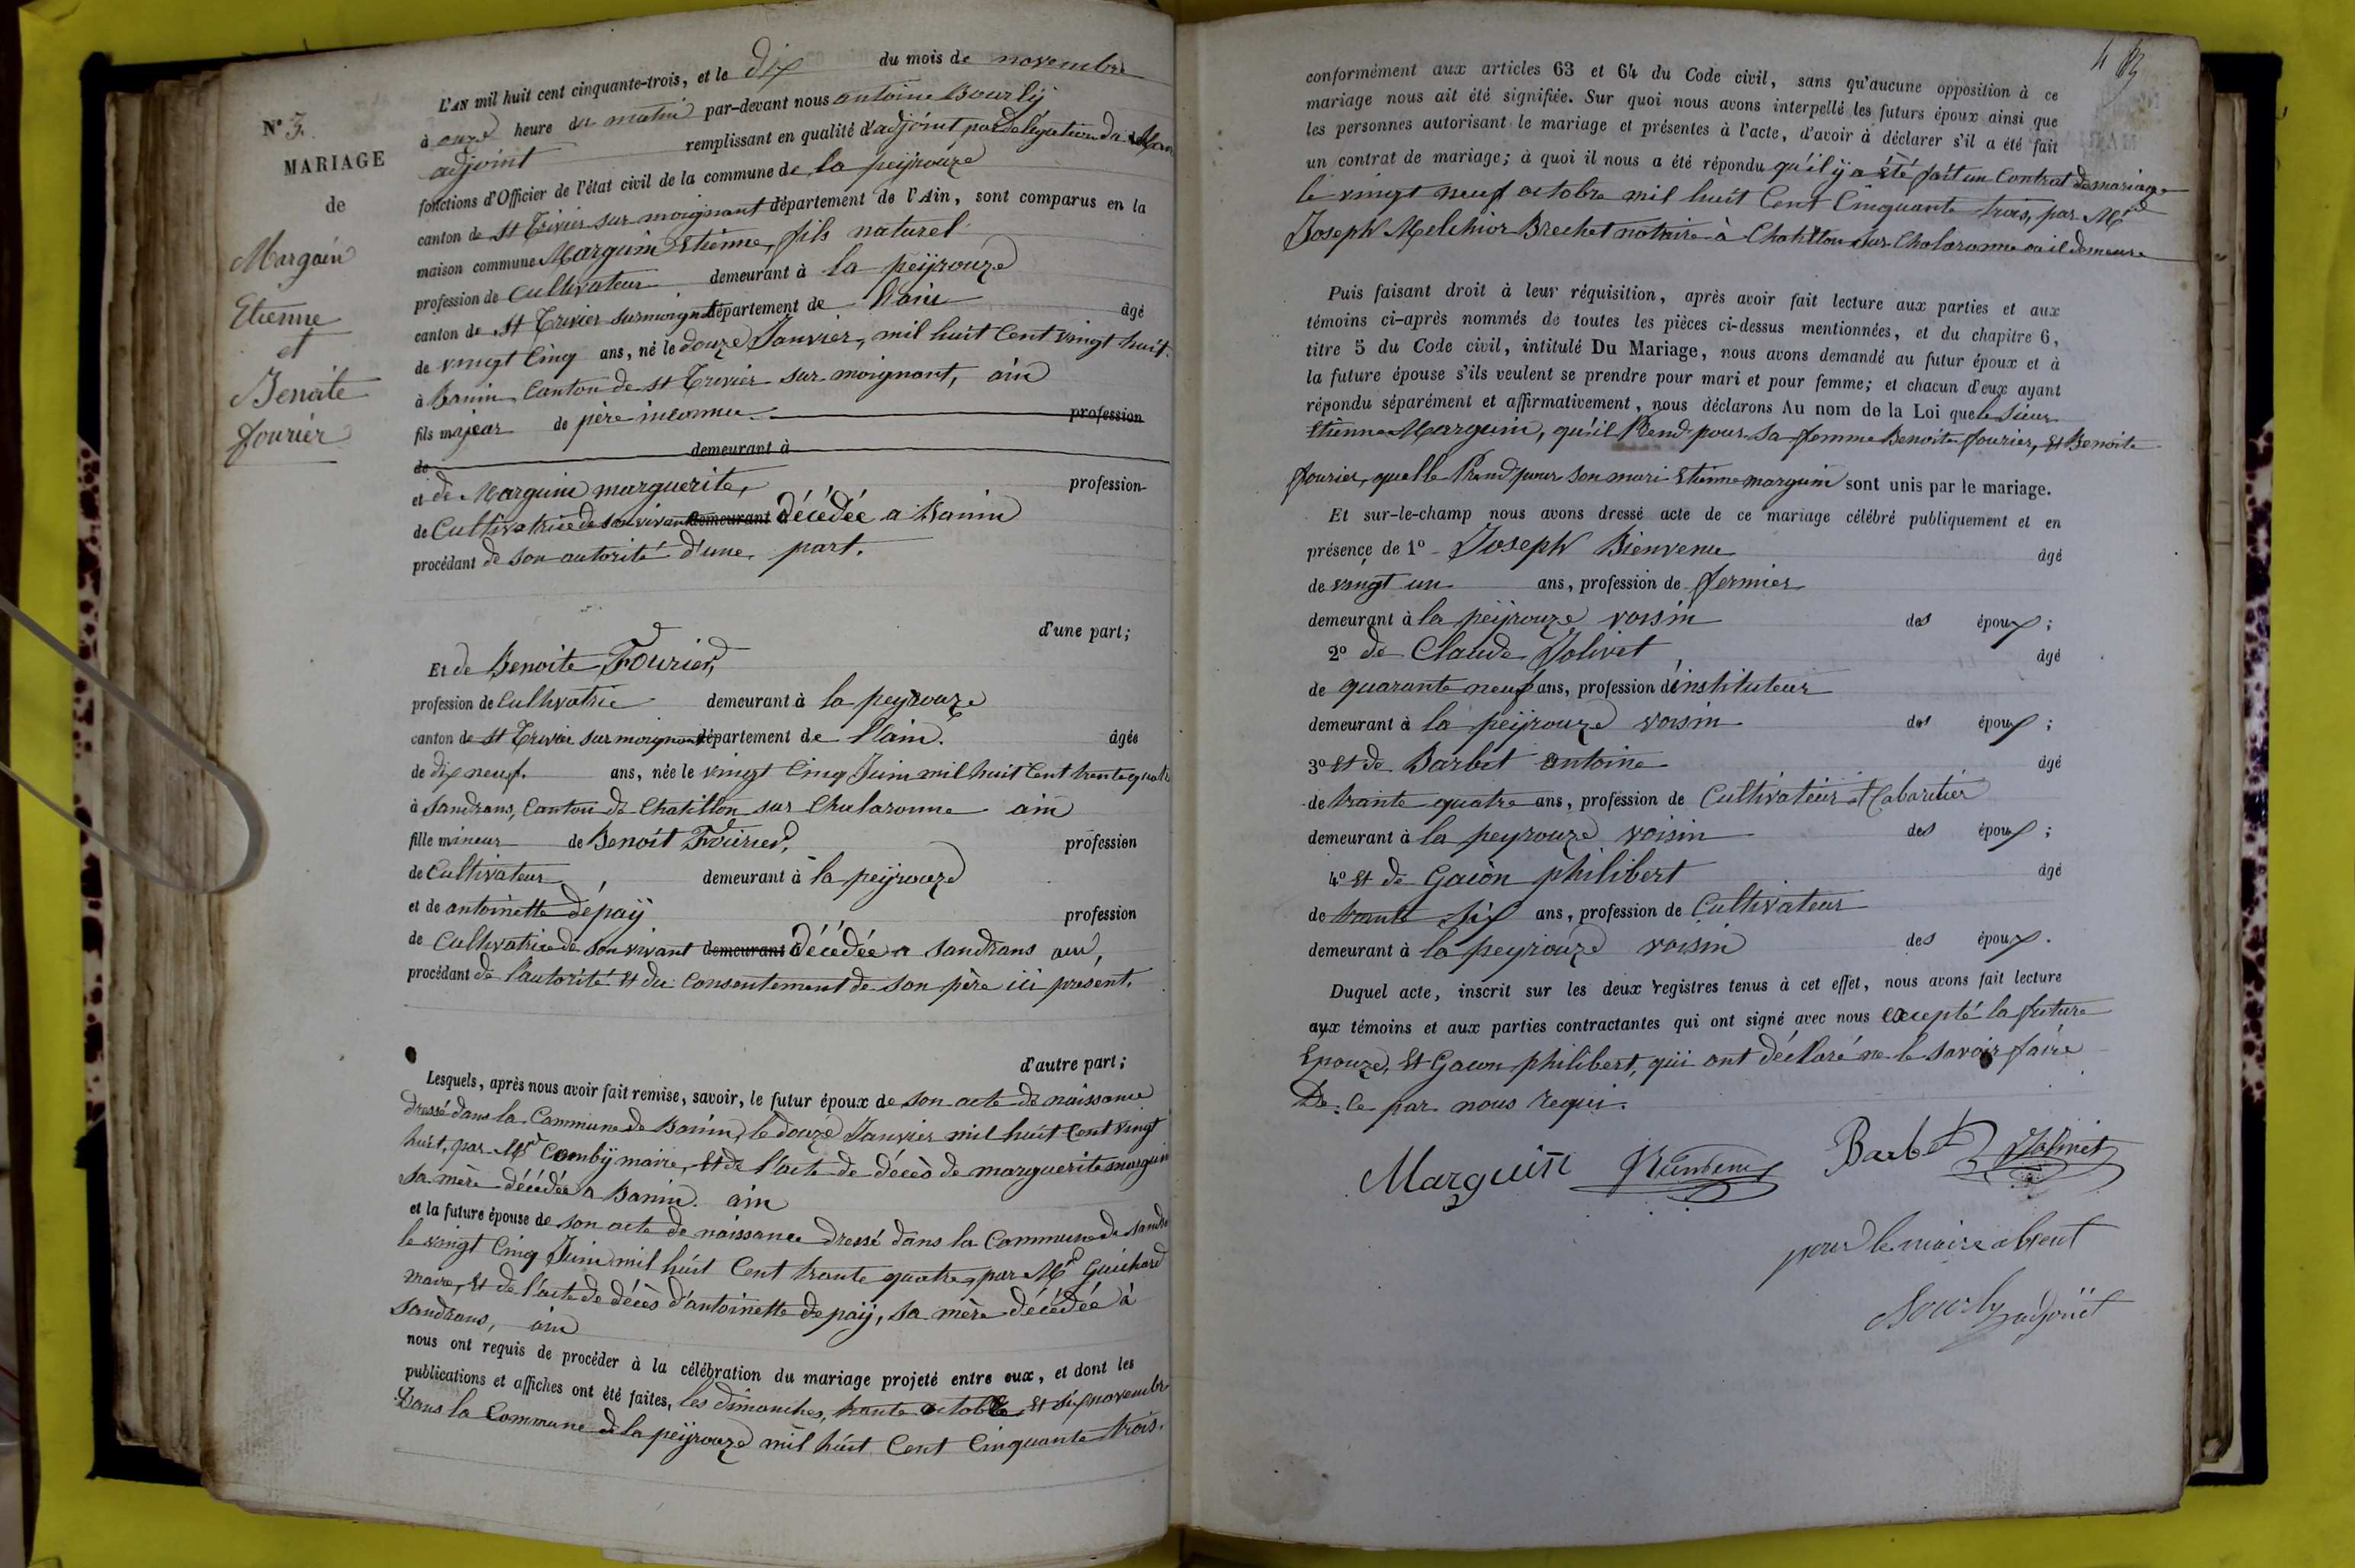 N° 7.
MARIAGE
de
Marguin
Etienne
et
Benoite
fourier
L'AN mil huit cent cinquante-trois, et le dix du mois de novembre
à onze heure du matin par-devant nous antoine Bourly
adjoint remplissant en qualité d'adjoint par délégation du
fonctions d'Officier de l'état civil de la commune de la peÿrouze
canton de St Trivier sur moignant département de l'Ain, sont comparus en la
maison commune Marguin Etienne, fils naturel
profession de Cultivateur demeurant à la peÿrouze
canton de St Trivier sur moignant département de l'ain âgé
de vingt cinq ans, né le douze Janvier, mil huit Cent vingt huit
à Banin, Canton de St Trivier sur moignant, ain
fils majeur de père inconnu profession
de demeurant à
et de Marguin marguerite, profession
de Cultivatrice de son vivant demeurant décédée a Banin
procédant de son autorité d'une part.
d'une part;
Et de Benoite Fourier,
profession de Cultivatrice demeurant à la peyrouze
canton de St Trivier sur moignant département de l'ain. âgée
de dix neuf. ans, née le vingt Cinq Juin mil huit Cent trente quatre
à Sandrans, Canton de Chatillon sur Chalaronne ain
fille mineur de Benoit Fourier, profession
de Cultivateur, demeurant à la peÿrouze
et de antoinette dépaÿ profession
de Cultivatrice de son vivant demeurant décédée a Sandrans ain,
procédant de l'autorité et du Consentement de son père ici présent.
d'autre part;
Lesquels, après nous avoir fait remise, savoir, le futur époux de son acte de naissance
dressé dans la Commune de Banin, le douze Janvier mil huit Cent vingt
huit, par Mr Combÿ maire, et de l'acte de décès de marguerite marguin
sa mère décédée a Banin. ain
et la future épouse de son acte de naissance dressé dans la Commune de
le vingt Cinq Juin mil huit Cent trente quatre, par Mr Guichard
maire, et de l'acte de décès d'antoinette depaÿ, sa mère décédée à
Sandrans, ain
nous ont requis de procéder à la célébration du mariage projeté entre eux, et dont les
publications et affiches ont été faites, les dimanches, trente octobre et six novembre
Dans la Commune de la peÿrouze mil huit Cent Cinquante trois.
conformément aux articles 63 et 64 du Code civil, sans qu'aucune opposition à ce
mariage nous ait été signifiée. Sur quoi nous avons interpellé les futurs époux ainsi que
les personnes autorisant le mariage et présentes à l'acte, d'avoir à déclarer s'il a été fait
un contrat de mariage; à quoi il nous a été répondu qu'il ÿ a été fait un Contrat de mariage
le vingt neuf octobre mil huit Cent Cinquante trois, par Mr
Joseph Melchior Brechet notaire à Chatillon sur Chalaronne ou il demeure
Puis faisant droit à leur réquisition, après avoir fait lecture aux parties et aux
témoins ci-après nommés de toutes les pièces ci-dessus mentionnées, et du chapitre 6,
titre 5 du Code civil, intitulé Du Mariage, nous avons demandé au futur époux et à
la future épouse s'ils veulent se prendre pour mari et pour femme; et chacun d'eux ayant
répondu séparément et affirmativement, nous déclarons Au nom de la Loi que le sieur
Etienne Marguin, qu'il Prend pour sa femme Benoite fourier, et Benoite
fourier, quelle Prend pour son mari Etienne marguin sont unis par le mariage.
Et sur-le-champ nous avons dressé acte de ce mariage célébré publiquement et en
présence de 1° Joseph Bienvenu âgé
de vingt un ans, profession de fermier
demeurant à la peÿrouze voisin des époux;
2° de Claude Jolivet, âgé
de quarante neuf ans, profession d'instituteur
demeurant à la peÿrouze voisin des époux;
3° et de Barbet antoine âgé
de trente quatre ans, profession de Cultivateur et Cabaretier
demeurant à la peyrouze voisin des époux;
4° et de Gacon philibert âgé
de trente six ans, profession de Cultivateur
demeurant à la peyrouze voisin des époux.
Duquel acte, inscrit sur les deux registres tenus à cet effet, nous avons fait lecture
aux témoins et aux parties contractantes qui ont signé avec nous excepté la future
Epouze, et Gacon philibert, qui ont déclaré ne le savoir faire
De ce par nous requi.
Marguin Bienvenu Barbet Jolivet
pour le maire absent
Bourly adjoint